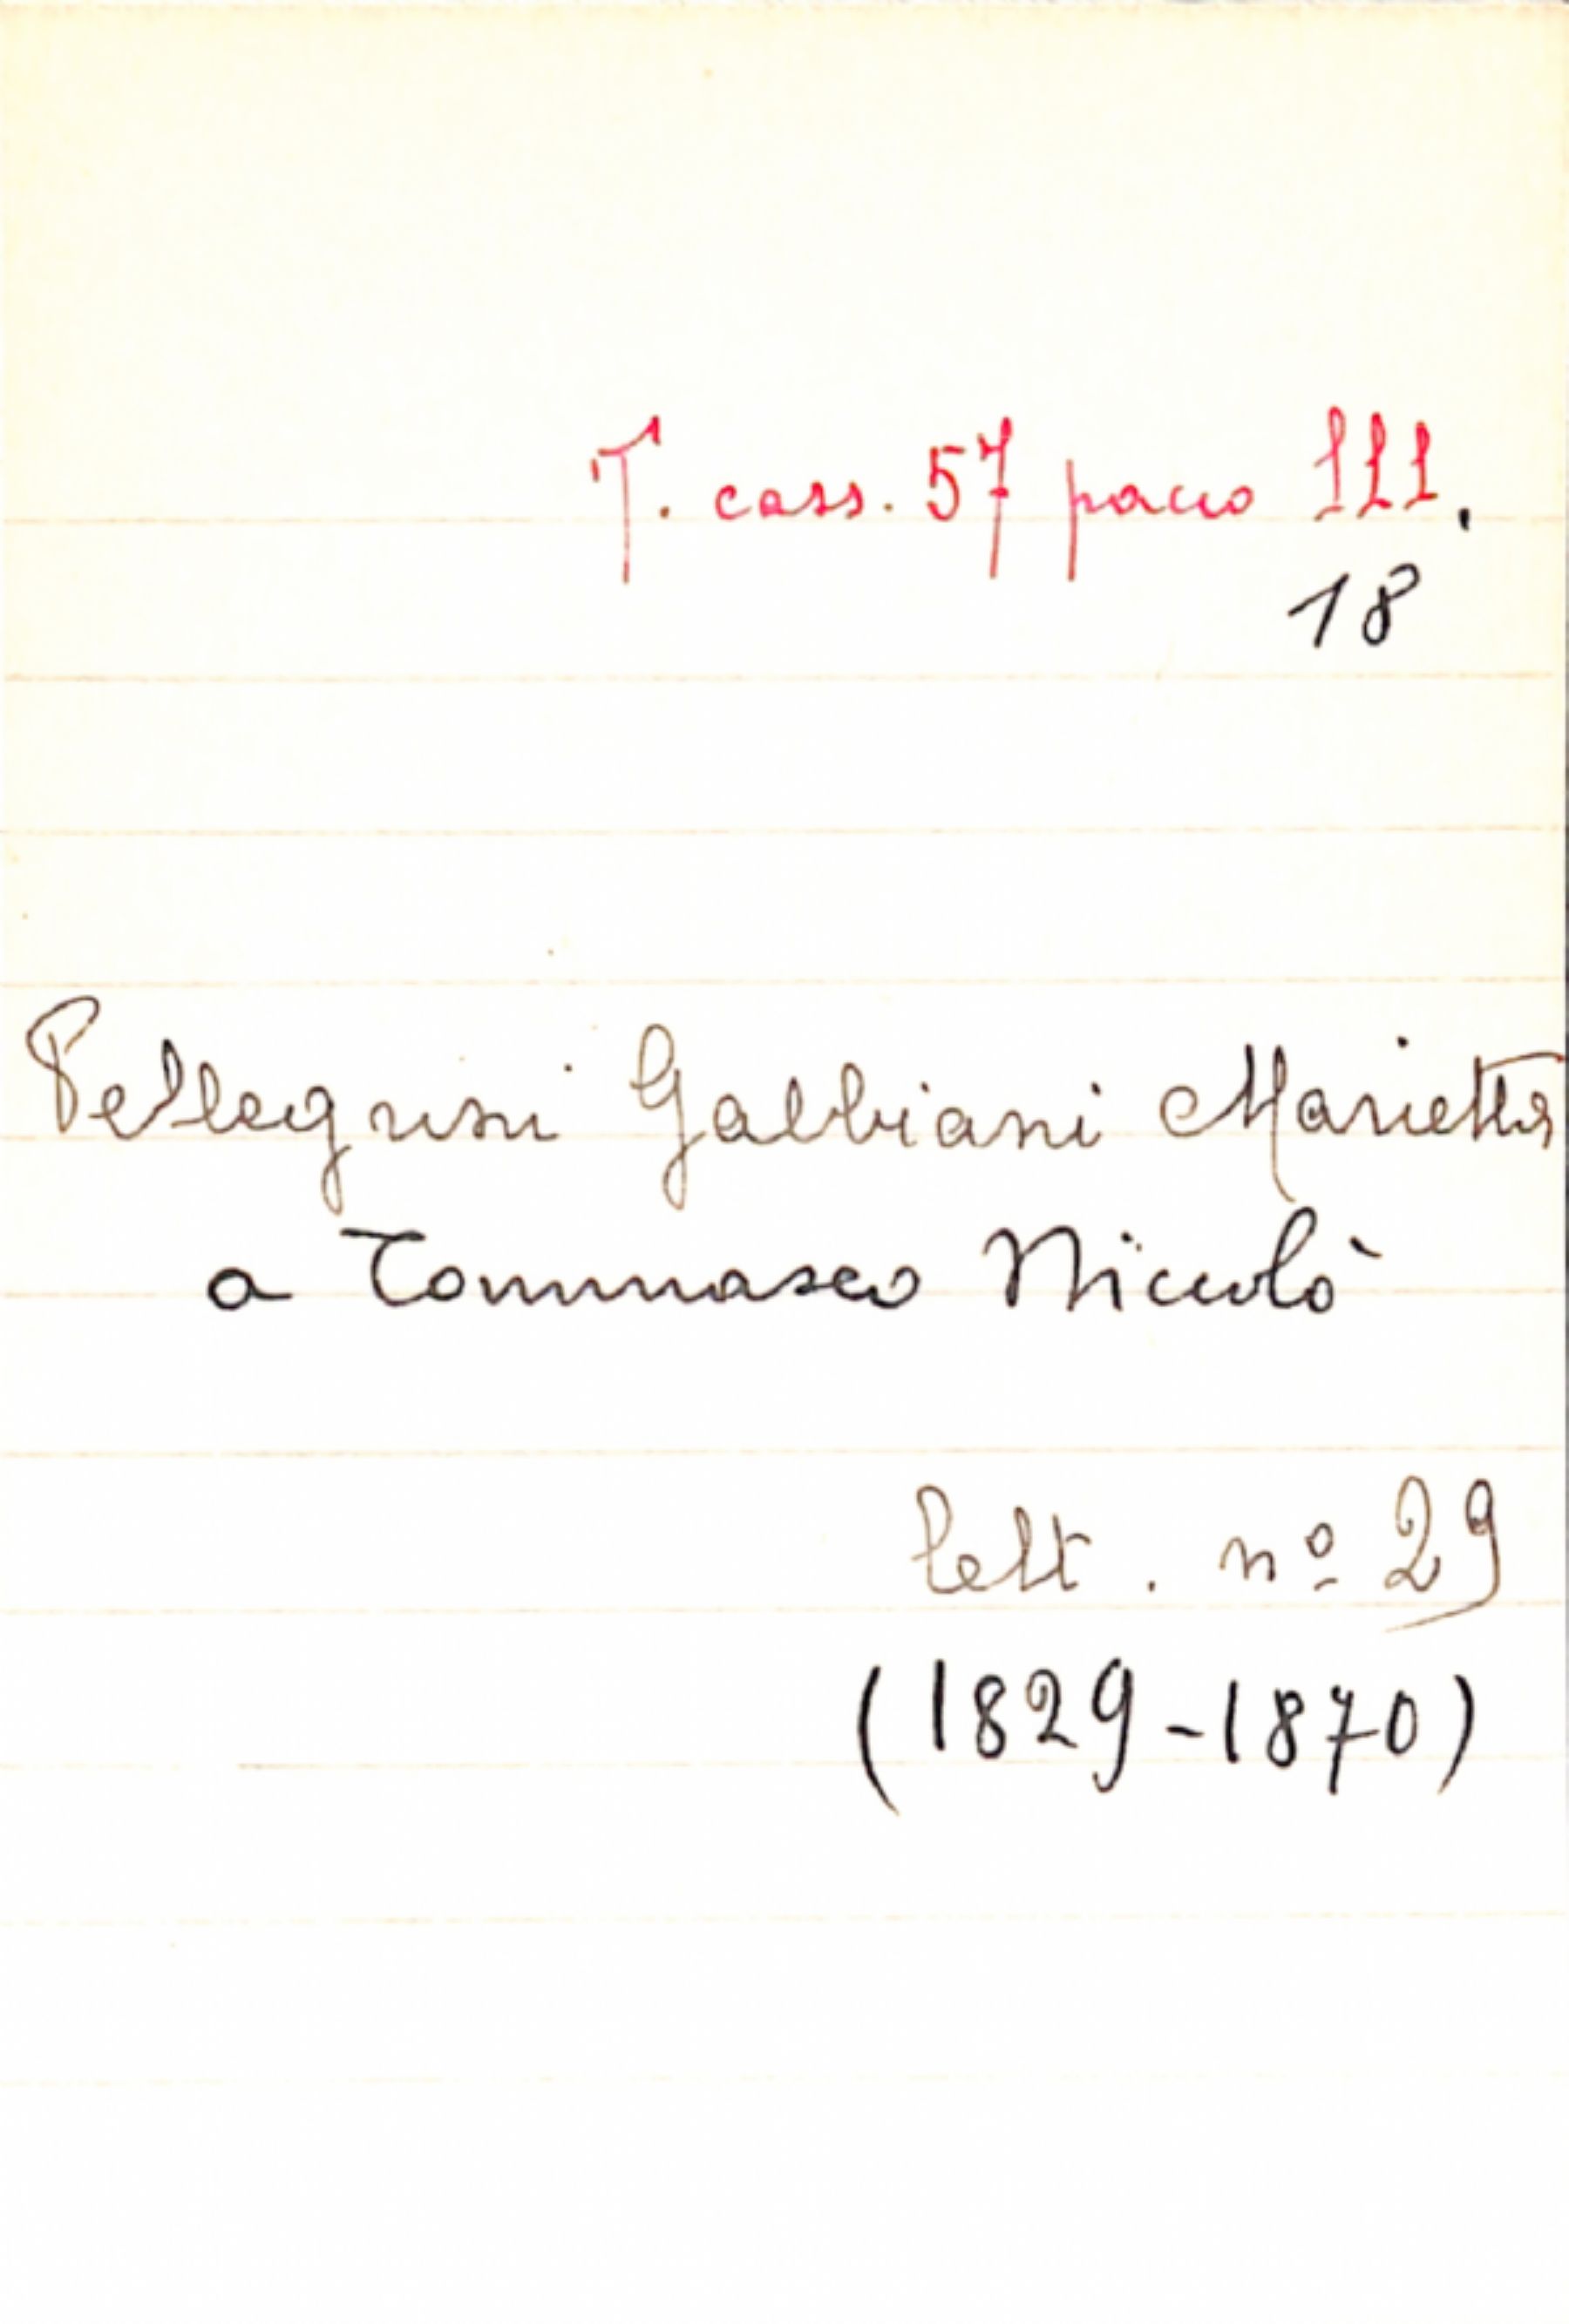 T. cass. 57 pacco III.
18
Pellegrini Gabbiani Marietta
a Tommaseo Niccolò
lett. nº 29
(1829-1870)